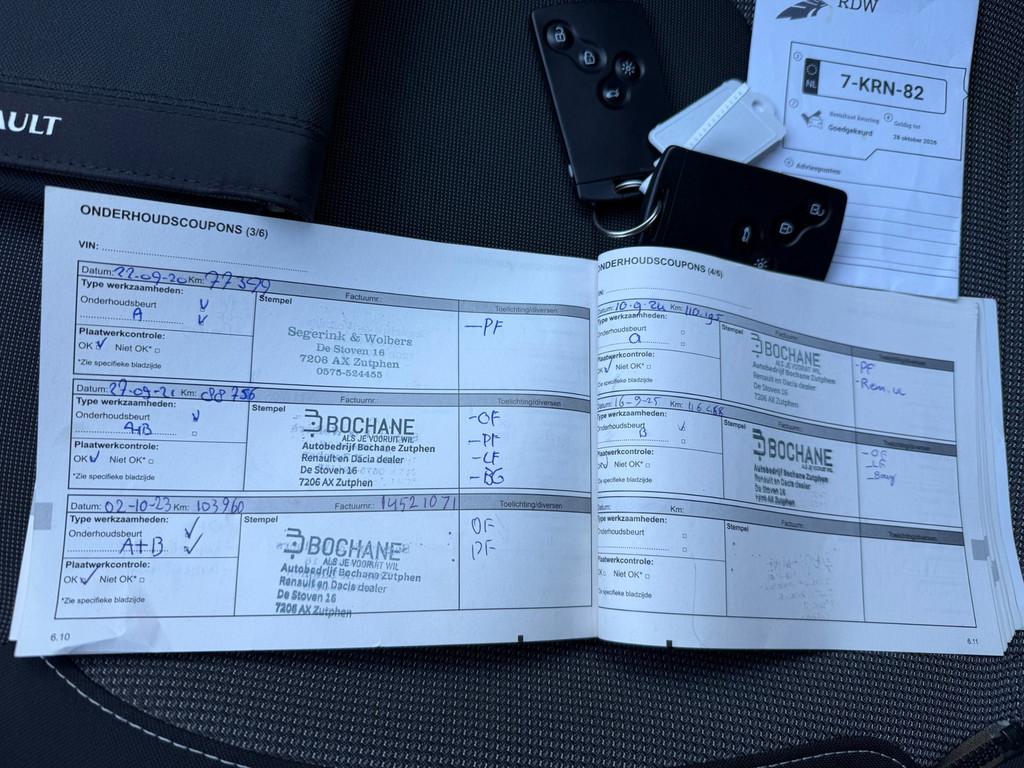 AULT
RDW
NL
7-KRN-82
Resultaat keuring
Geldig tot
Goedgekeurd
28 oktober 2026
Adviespunten
ONDERHOUDSCOUPONS (3/6)
VIN:
Datum: 22-09-20 Km: 77399
Type werkzaamheden:
Onderhoudsbeurt
A
Plaatwerkcontrole:
OK Niet OK*
*Zie specifieke bladzijde
Stempel
Factuurnr.:
Segerink & Wolbers
De Stoven 16
7206 AX Zutphen
0575-524455
Toelichting/diversen
-PF
Datum: 27-09-21 Km: 088756
Type werkzaamheden:
Onderhoudsbeurt
A+B
Plaatwerkcontrole:
OK Niet OK*
*Zie specifieke bladzijde
Stempel
BOCHANE
ALS JE VOORUIT WIL
Autobedrijf Bochane Zutphen
Renault en Dacia dealer
De Stoven 16
7206 AX Zutphen
Toelichting/diversen
-OF
-PF
-LF
-BG
Datum: 02-10-23 Km: 103960
Type werkzaamheden:
Onderhoudsbeurt
A+B
Plaatwerkcontrole:
OK Niet OK*
*Zie specifieke bladzijde
Stempel
Factuurnr.: 14521071
BOCHANE
ALS JE VOORUIT WIL
Autobedrijf Bochane Zutphen
Renault en Dacia dealer
De Stoven 16
7206 AX Zutphen
Toelichting/diversen
OF
PF
6.10
ONDERHOUDSCOUPONS (4/6)
Datum: 10-9-24 Km: 110.195
Type werkzaamheden:
Onderhoudsbeurt
a
Plaatwerkcontrole:
OK Niet OK*
Zie specifieke bladzijde
Stempel
BOCHANE
ALS JE VOORUIT WIL
Autobedrijf Bochane Zutphen
Renault en Dacia dealer
De Stoven 16
7206 AX Zutphen
Toelichting/diversen
-PF
-Rem.
Datum: 16-9-25 Km:
Type werkzaamheden:
Onderhoudsbeurt
B
Plaatwerkcontrole:
Niet OK*
Zie specifieke bladzijde
Stempel
BOCHANE
ALS JE VOORUIT WIL
Autobedrijf Bochane Zutphen
Renault en Dacia dealer
De Stoven 16
7206 AX Zutphen
Toelichting/diversen
-OF
-LF
Datum: Km:
Type werkzaamheden:
Onderhoudsbeurt
Plaatwerkcontrole:
OK Niet OK*
Zie specifieke bladzijde
Stempel
Factuurnr.:
Toelichting/diversen
6.11